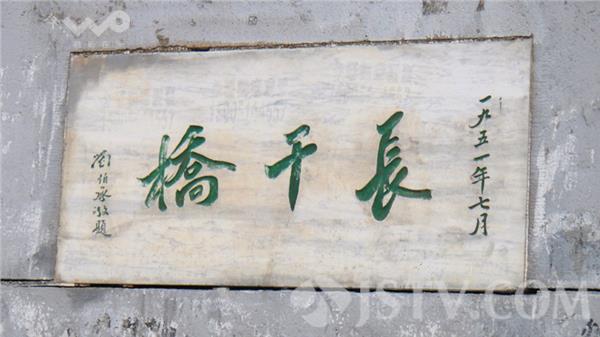 一九五一年七月
長干橋
劉伯承敬題
JSTV.COM